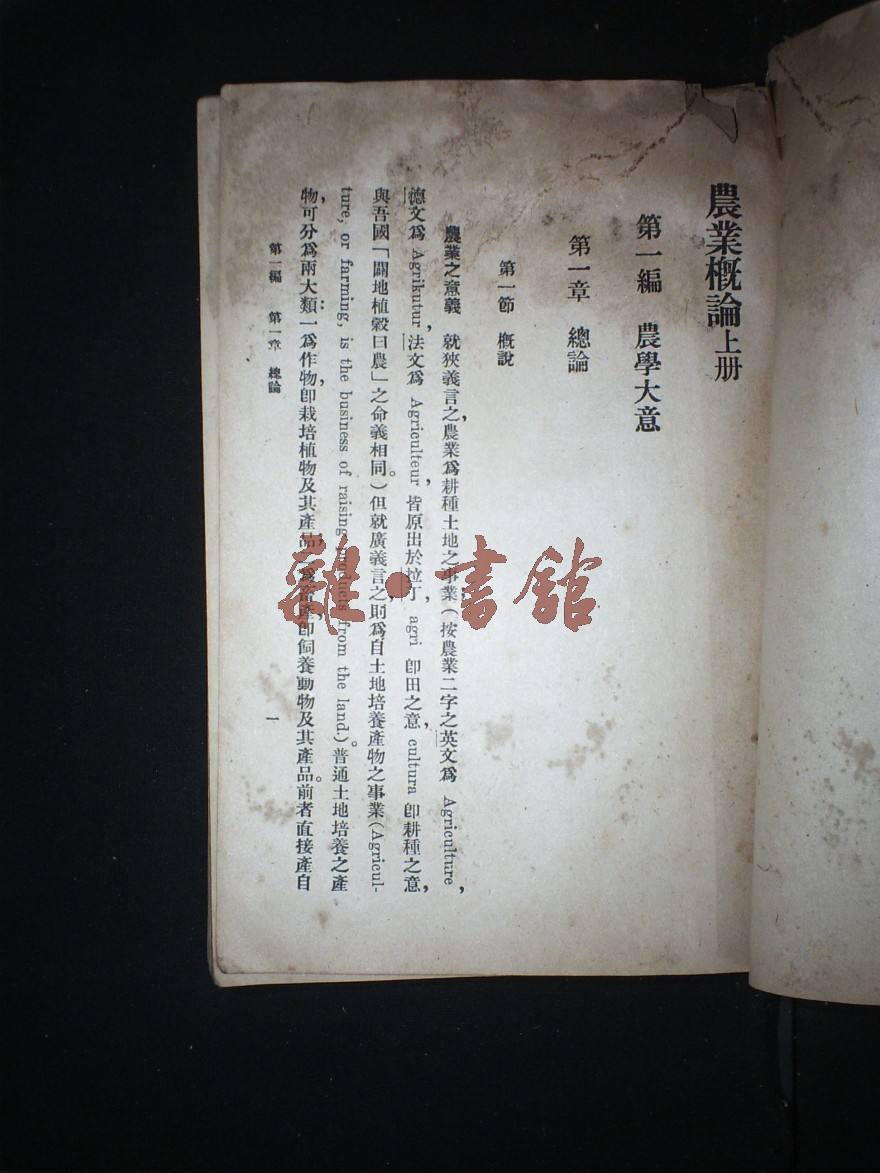 農業概論上册
第一編　農學大意
第一章　總論
第一節　概說
農業之意義　就狹義言之，農業爲耕種土地之事業（按農業二字之英文爲 Agriculture,
德文爲 Agrikutur，法文爲 Agriculteur，皆原出於拉丁，agri 卽田之意，cultura 卽耕種之意，
與吾國「闢地植穀曰農」之命義相同。）但就廣義言之，則爲自土地培養產物之事業（Agricul-
ture, or farming, is the business of raising products from the land.）。普通土地培養之產
物，可分爲兩大類：一爲作物，卽栽培植物及其產品，爲畜產，卽飼養動物及其產品。前者直接產自
第一編　第一章　總論
一
雜·書館